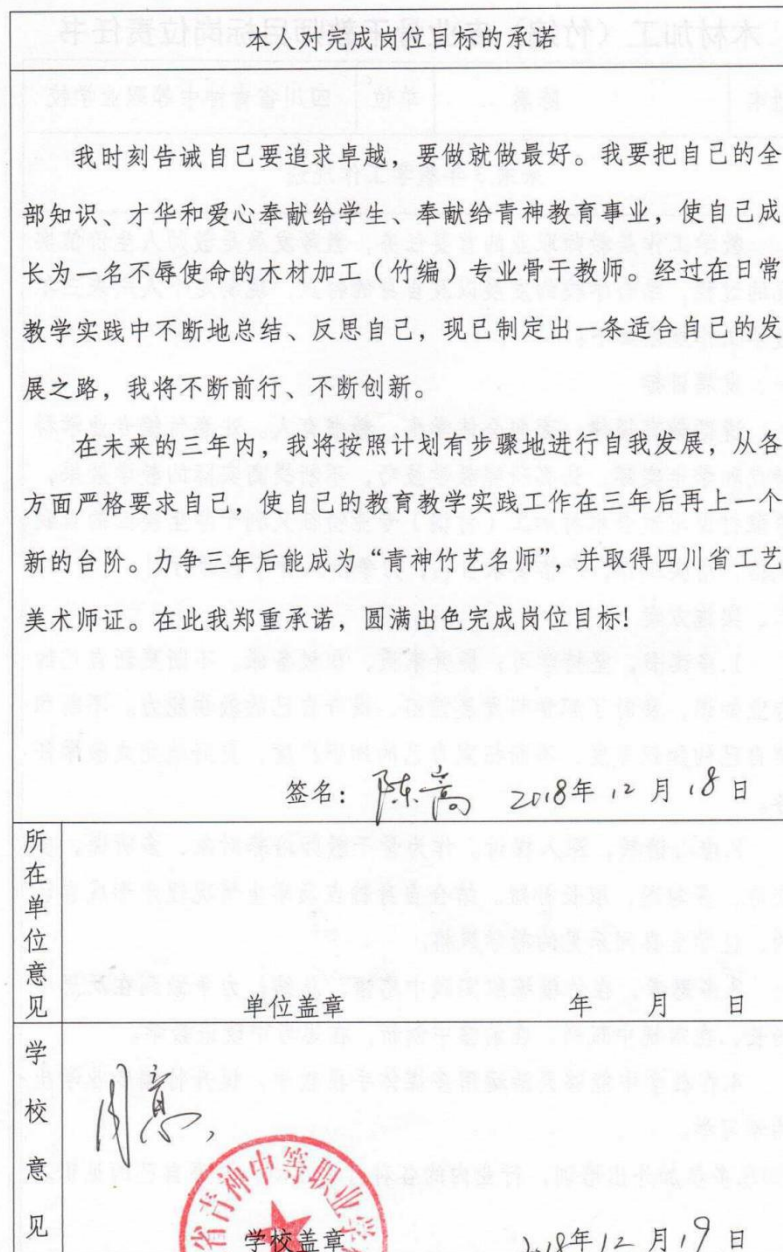 本人对完成岗位目标的承诺
我时刻告诫自己要追求卓越，要做就做最好。我要把自己的全
部知识、才华和爱心奉献给学生、奉献给青神教育事业，使自己成
长为一名不辱使命的木材加工（竹编）专业骨干教师。经过在日常
教学实践中不断地总结、反思自己，现已制定出一条适合自己的发
展之路，我将不断前行、不断创新。
在未来的三年内，我将按照计划有步骤地进行自我发展，从各
方面严格要求自己，使自己的教育教学实践工作在三年后再上一个
新的台阶。力争三年后能成为“青神竹艺名师”，并取得四川省工艺
美术师证。在此我郑重承诺，圆满出色完成岗位目标！
签名：陈嵩 2018年12月18日
所在单位意见
单位盖章 年 月 日
学校意见
同意，
省青神中等职业学
学校盖章 2018年12月19日